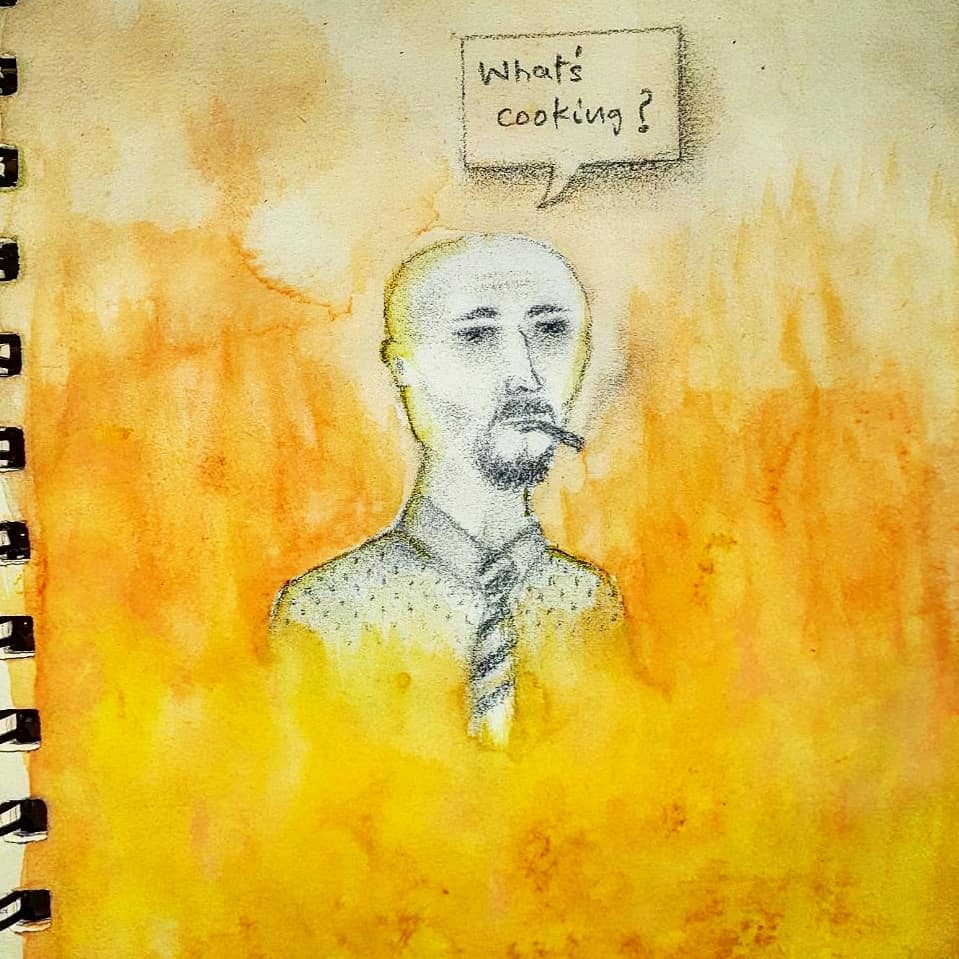 What's
cooking?